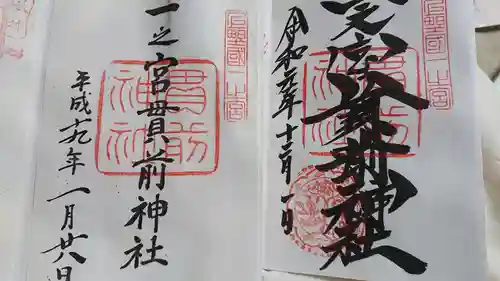 上野國一之宮
奉拝
貫前神社
令和元年十二月一日
上野國一之宮
一之宮貫前神社
貫前神社
平成十九年一月廿八日